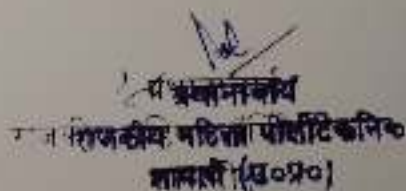 प्रधानाचार्य
राजकीय महिला पॉलीटेकनिक
शामली (उ०प्र०)